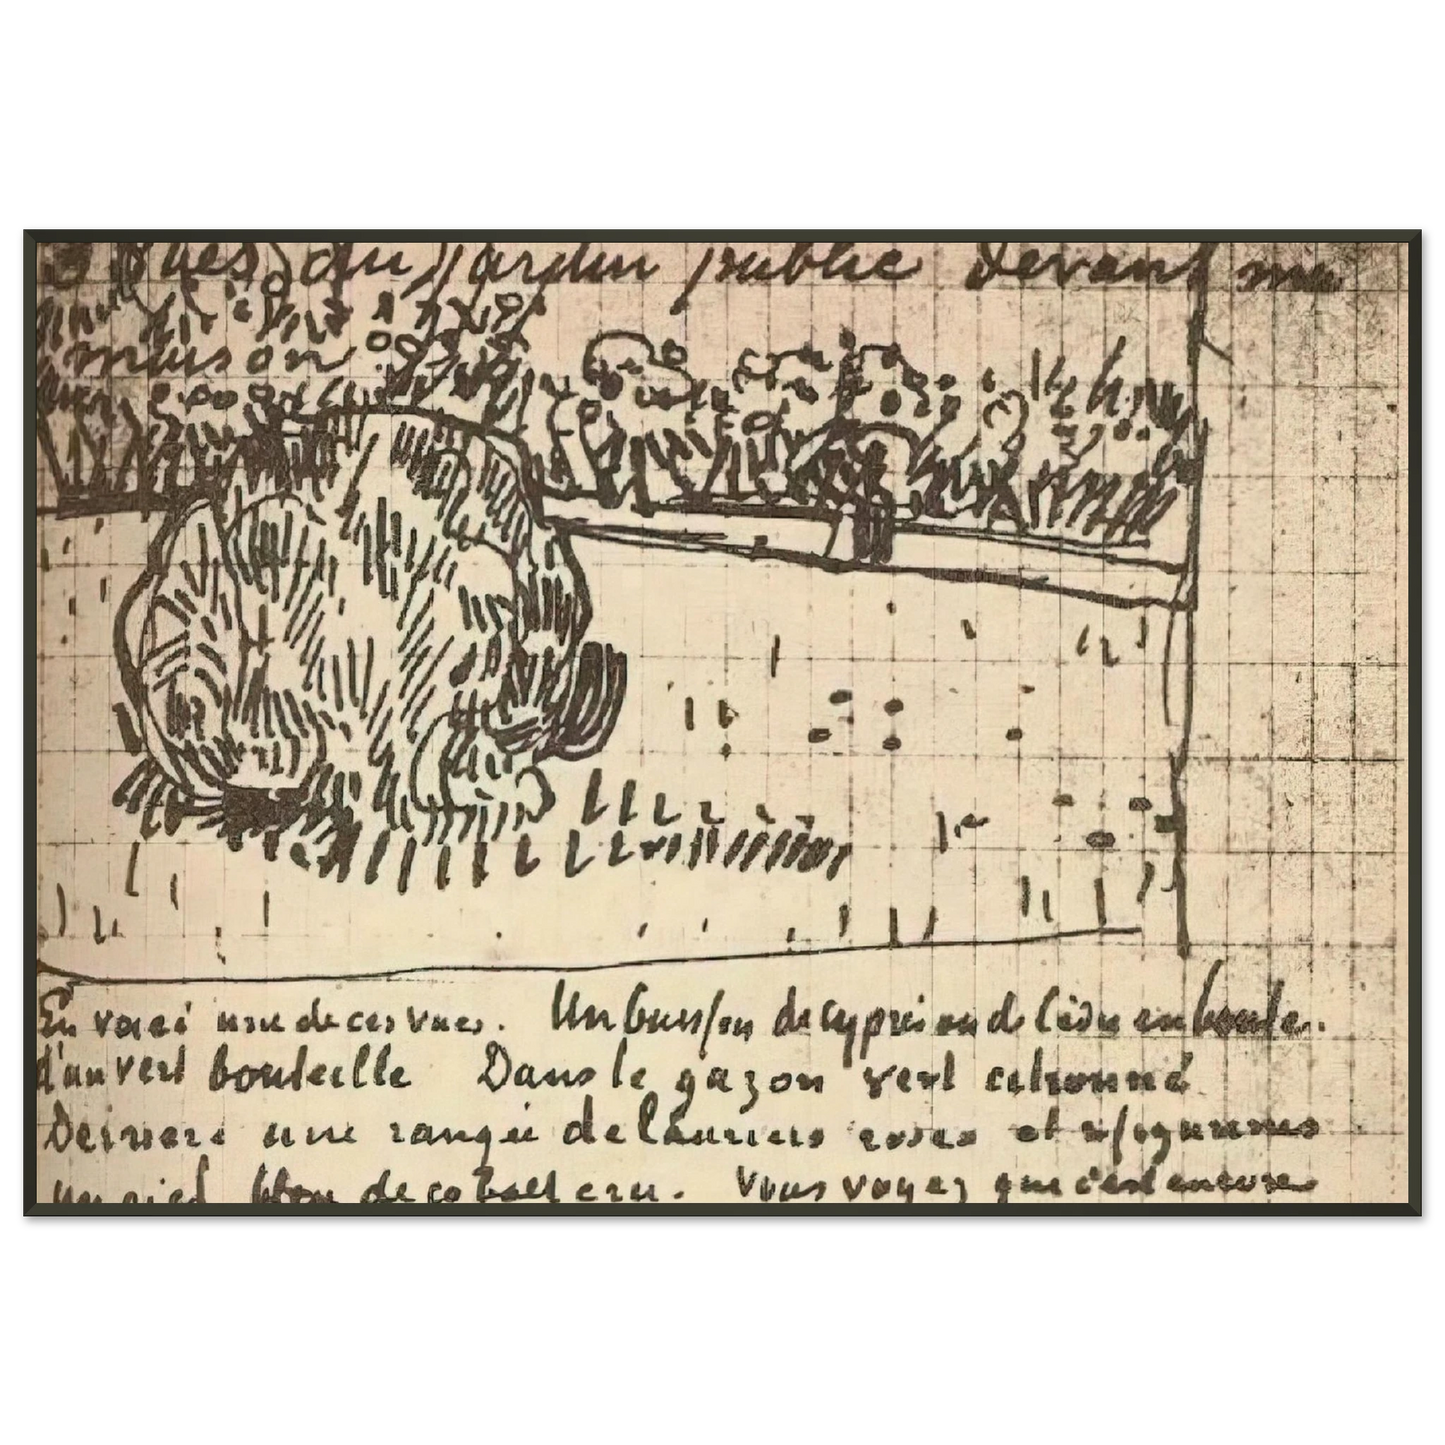 vues du jardin public devant ma
maison
En voici une de ces vues. Un buisson de cyprès ou de en boule.
d'un vert bouteille Dans le gazon vert citronné
Derrière une rangée de lauriers roses et
un pied bleu de cobalt cru. Vous voyez que c'est encore